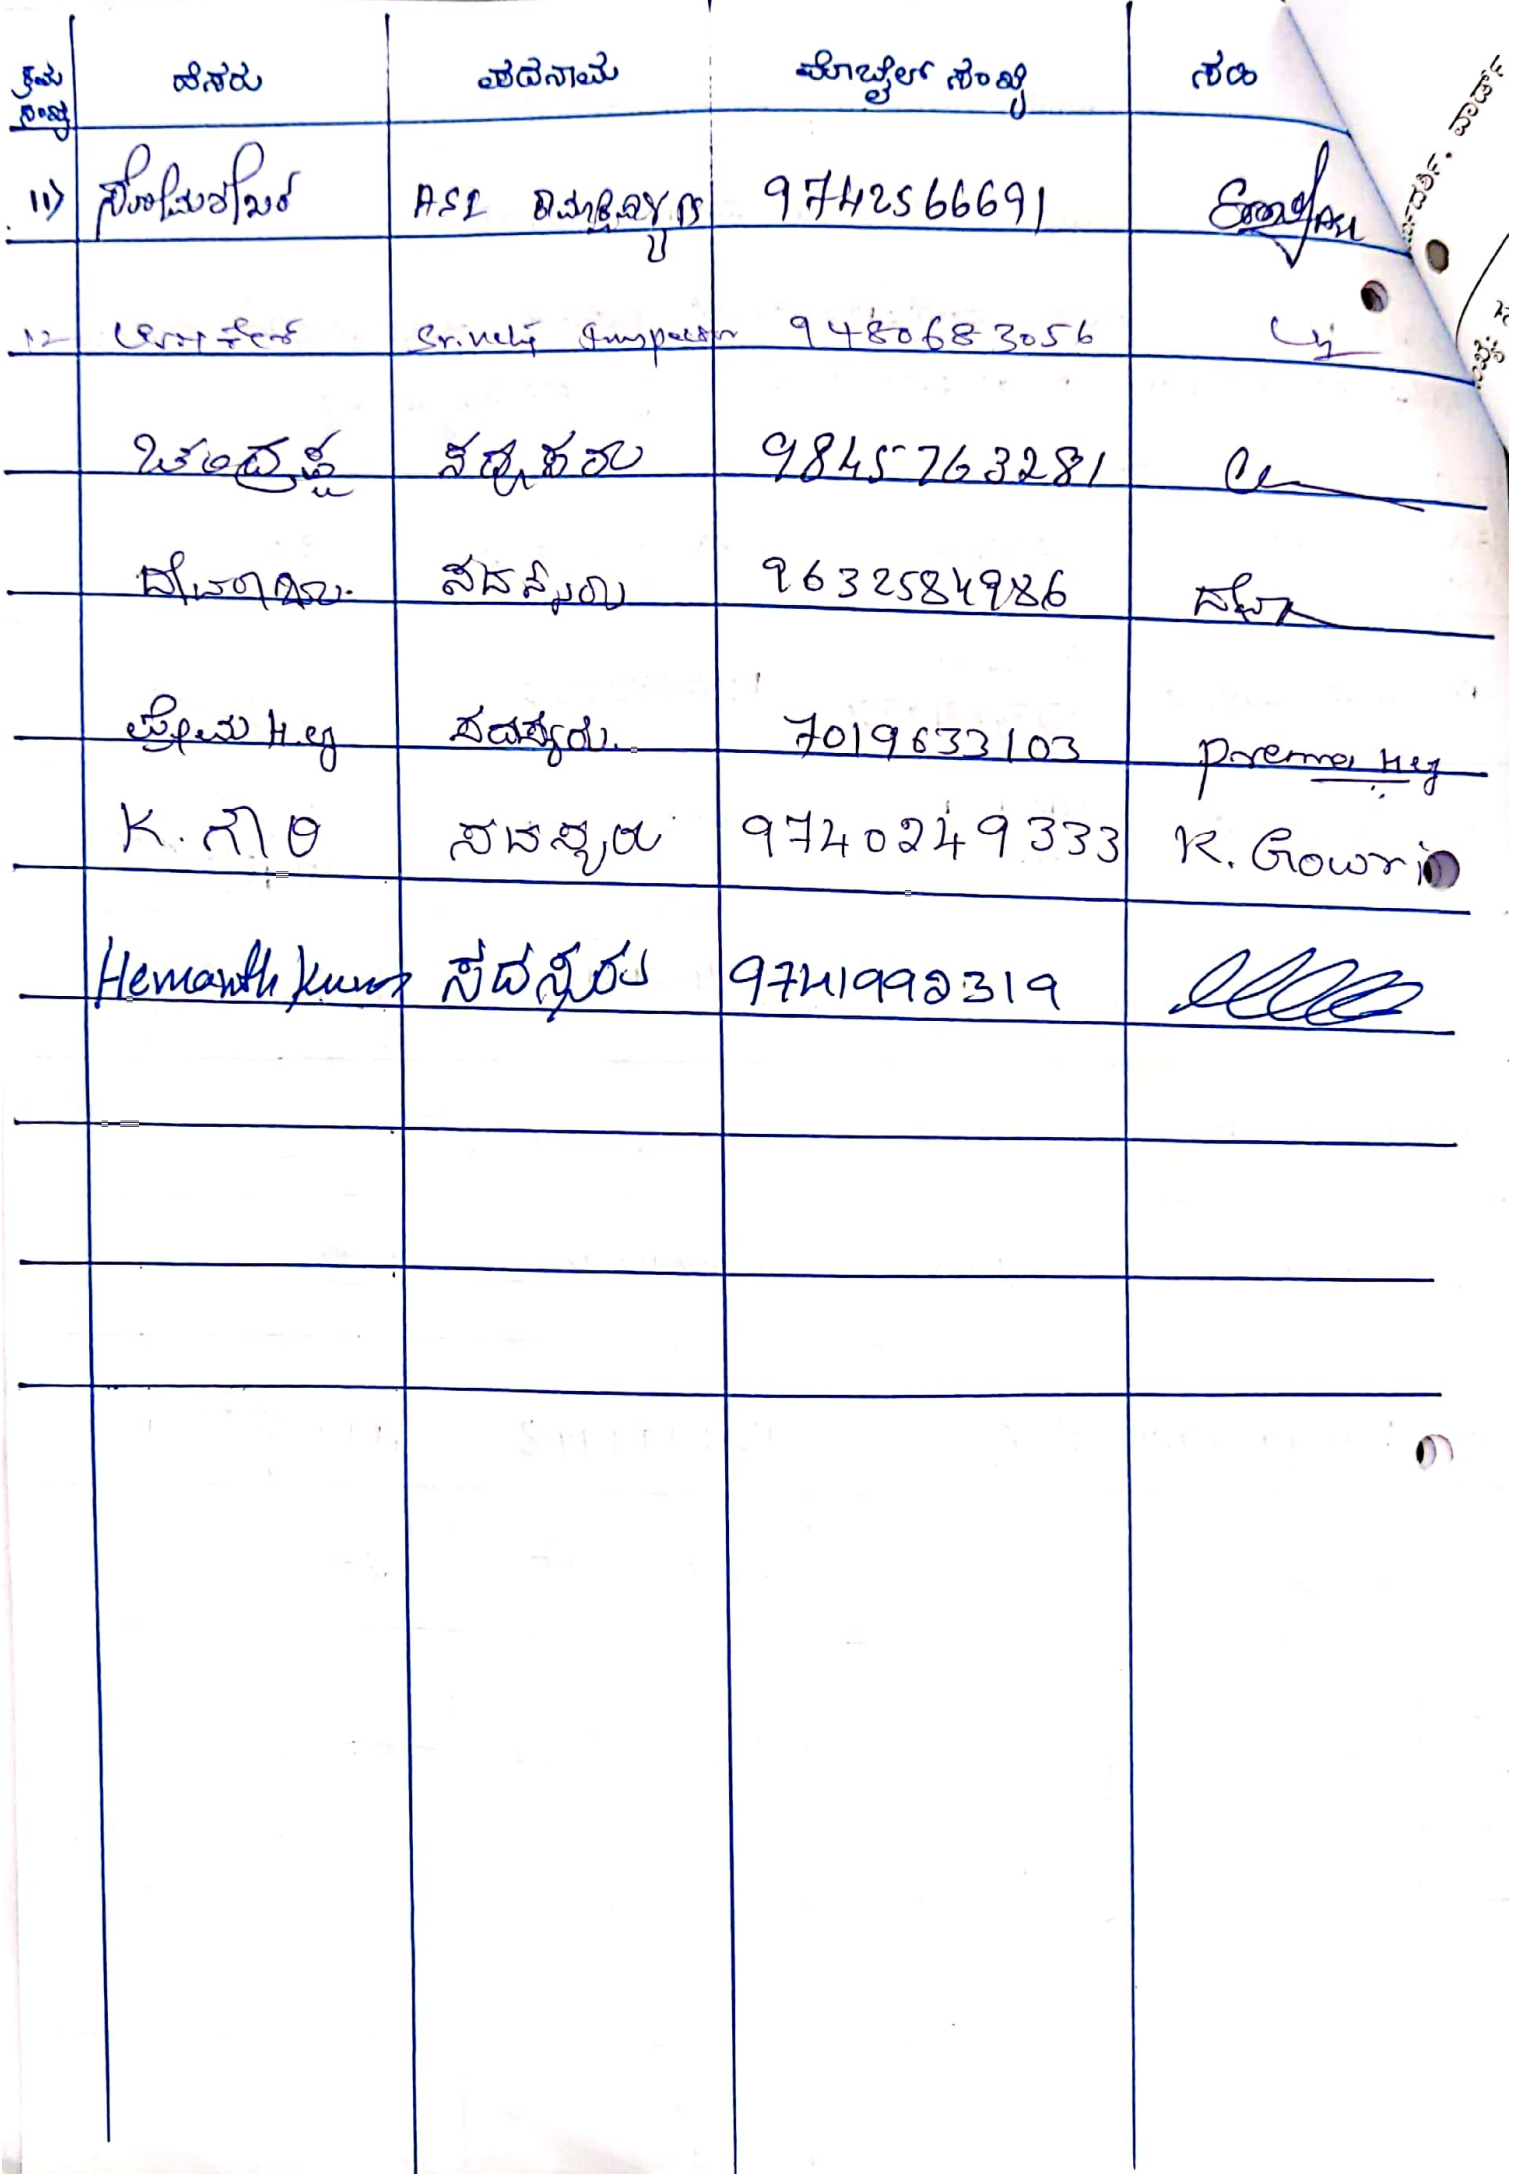 ಕ್ರಮ ಸಂಖ್ಯೆ ಹೆಸರು ಪದನಾಮ ಮೊಬೈಲ್ ಸಂಖ್ಯೆ ಸಹಿ
11) ಸೋಮಶೇಖರ ASI 9742566691
12 9480683056
ಚಂದ್ರಪ್ಪ 9845763281
ದೇವರಾಜು. ಸದಸ್ಯರು 9632584986 ದೇವಾ
ಪ್ರೇಮ H.ಆ ಸದಸ್ಯರು. 7019633103 Prema
K. ಗೌರಿ ಸದಸ್ಯರು 9740249333 K. Gowri
Hemanth Kumar ಸದಸ್ಯರು 9741992319